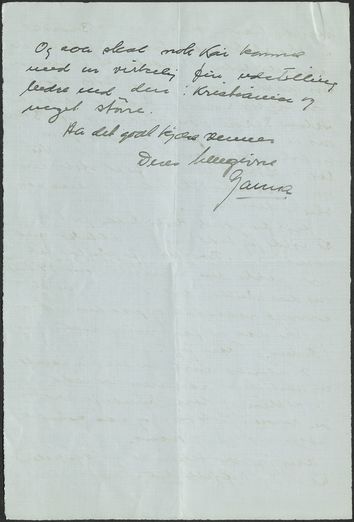 Og saa skal nok Kai komme
med en virkelig fin udstilling
bedre end den i Kristiania og
meget större.
Ha det godt kjære venner
Deres hengivne